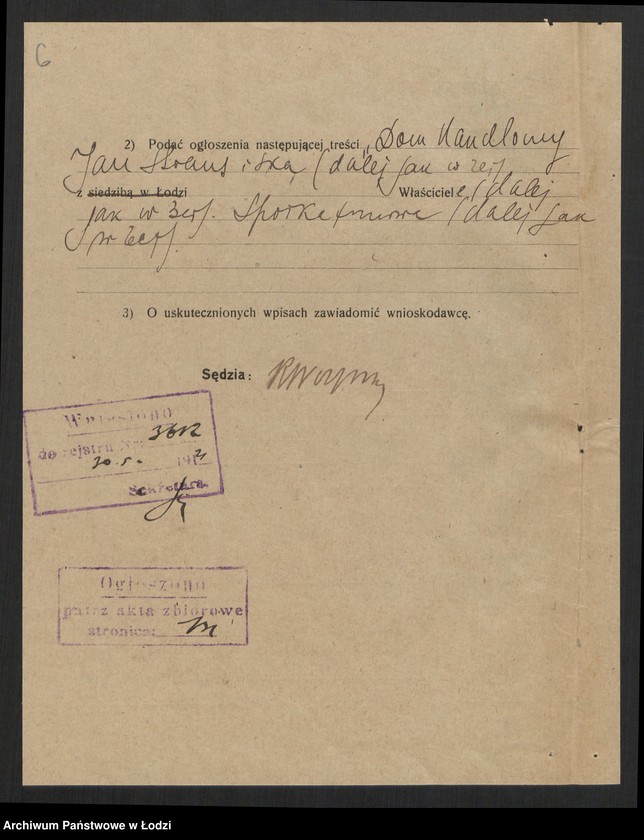 6
2) Podać ogłoszenia następującej treści „Dom Handlowy
Jan i Ska (dalej jak w rej.
z siedzibą w Łodzi Właściciele (dalej
jak w rej. Spółka firmowa (dalej jak
w rej.
3) O uskutecznionych wpisach zawiadomić wnioskodawcę.
Sędzia:
Wniesiono
do rejestru 3612
20.5. 192
Sekretarz
Ogłoszono
patrz akta zbiorowe
stronica:
Archiwum Państwowe w Łodzi